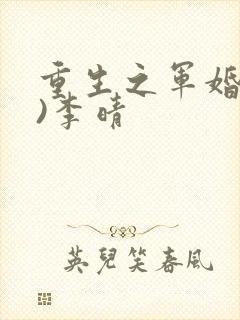 重生之军婚
)李晴
英兒笑春風